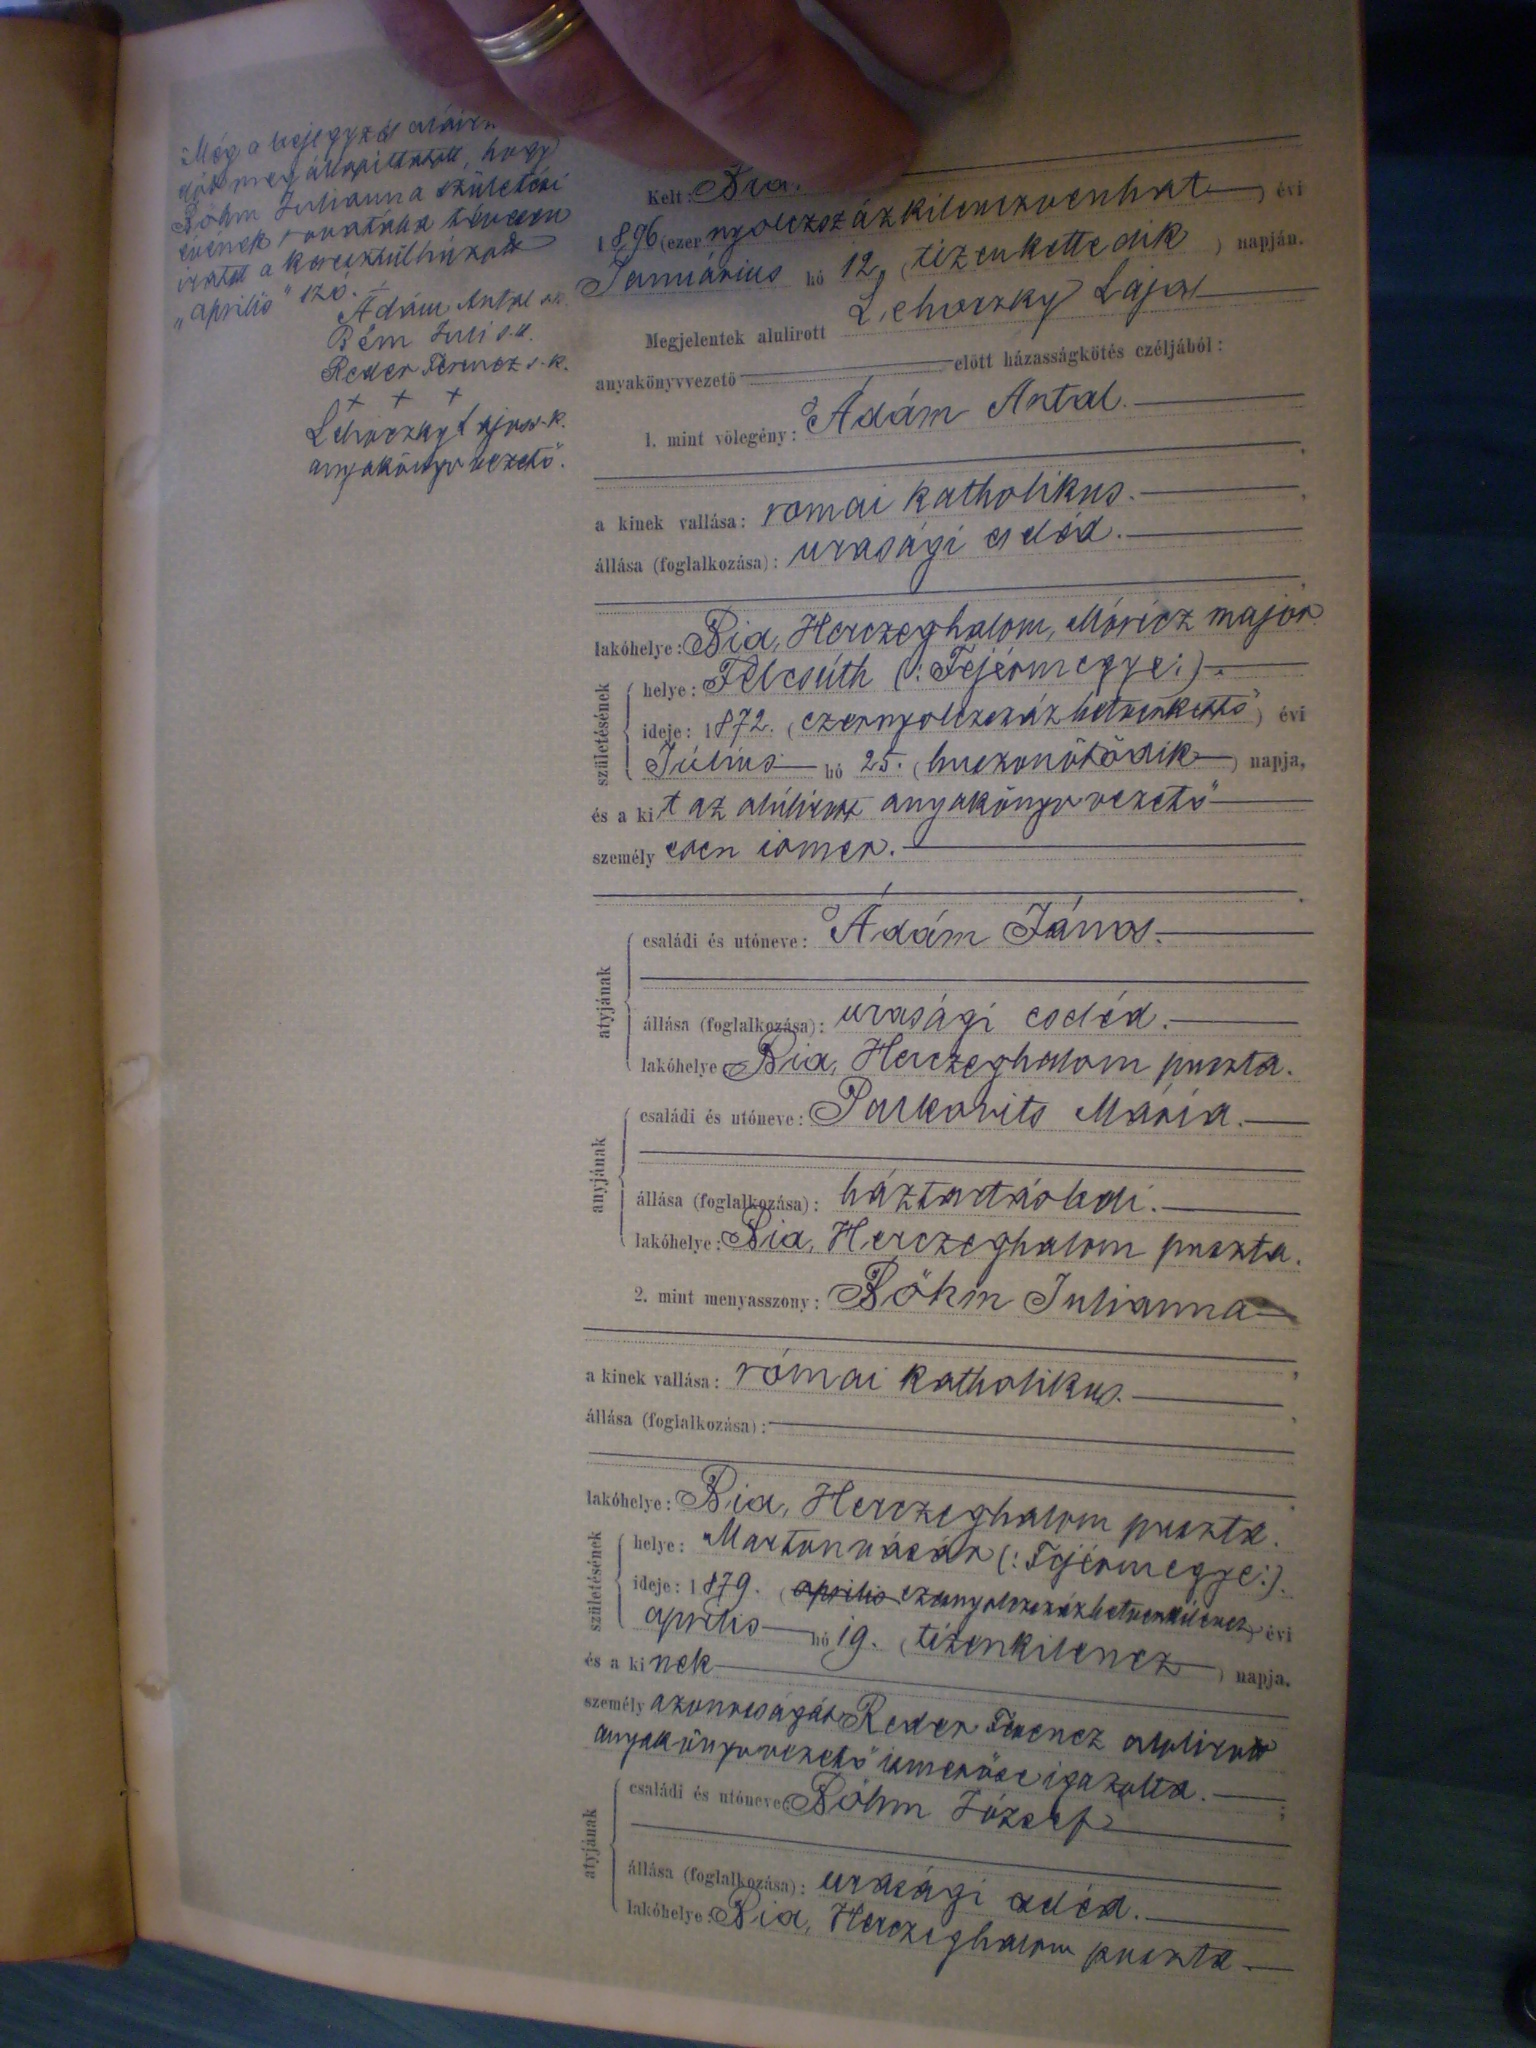 Még a bejegyzés aláírá
előtt megállapíttatott, hogy
Böhm Julianna születési
évének rovatába tévesen
iratott a keresztülhúzott
„április" szó.
Ádám Antal s.k.
Bém Juli s.k.
Reder Ferencz s.k.
+ + +
Lehoczky Lajos s.k.
anyakönyvvezető.
Kelt: Bia,
1896 (ezer nyolczszázkilenczvenhat) évi
Januárius hó 12. (tizenkettedik) napján.
Megjelentek alulirott Lehoczky Lajos
anyakönyvvezető előtt házasságkötés czéljából:
1. mint vőlegény: Ádám Antal.
a kinek vallása: romai katholikus.
állása (foglalkozása): urasági cseléd.
lakóhelye: Bia, Herczeghalom, Móricz major
születésének helye: Felcsúth (: Fejérmegye :).
ideje: 1872. (ezernyolczszázhetvenkettő) évi
Július hó 25. (huszonötödik) napja,
és a kit az alúlirott anyakönyvvezető
személyesen ismer.
atyjának családi és utóneve: Ádám János.
állása (foglalkozása): urasági cseléd.
lakóhelye Bia, Herczeghalom puszta.
anyjának családi és utóneve: Parkovits Mária.
állása (foglalkozása): háztartásbeli.
lakóhelye: Bia, Herczeghalom puszta.
2. mint menyasszony: Böhm Julianna
a kinek vallása: római katholikus.
állása (foglalkozása):
lakóhelye: Bia, Herczeghalom puszta.
születésének helye: Martonvásár (: Fejérmegye :).
ideje: 1879. (április ezernyolczszázhetvenkilencz) évi
április hó 19. (tizenkilencz) napja.
és a kinek
személyazonosságát Reder Ferencz alulirott
anyakönyvvezető ismerőse igazolta.
atyjának családi és utóneve: Böhm József
állása (foglalkozása): urasági cseléd.
lakóhelye: Bia, Herczeghalom puszta